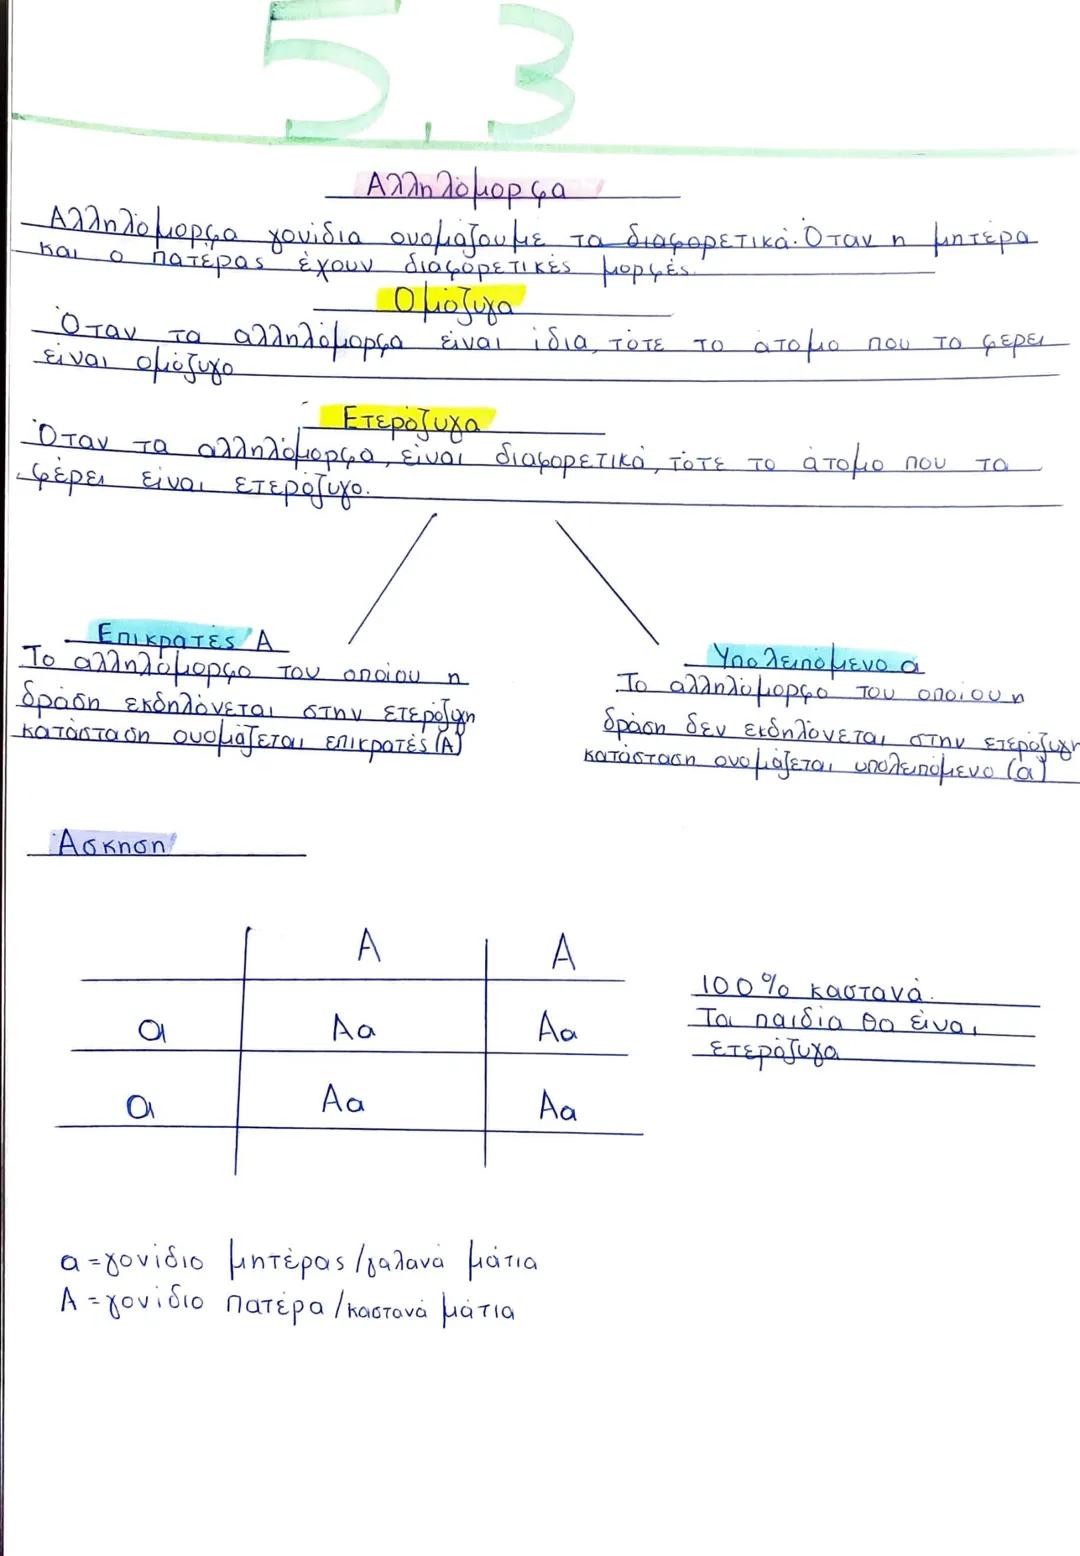 5.3
Αλληλόμορφα
Αλληλόμορφα γονίδια ονομάζουμε τα διαφορετικά. Όταν η μητέρα
και ο πατέρας έχουν διαφορετικές μορφές.
Ομόζυγα
Όταν τα αλληλόμορφα είναι ίδια, τότε το άτομο που το φέρει
είναι ομόζυγο
Ετερόζυγα
Όταν τα αλληλόμορφα, είναι διαφορετικά, τότε το άτομο που τα
φέρει είναι ετερόζυγο.
Επικρατές Α
Το αλληλόμορφο του οποίου η
δράση εκδηλώνεται στην ετερόζυγη
κατάσταση ονομάζεται επικρατές (Α)
Υπολειπόμενο α
Το αλληλόμορφο του οποίου η
δράση δεν εκδηλώνεται στην ετερόζυγη
κατάσταση ονομάζεται υπολειπόμενο (α)
Άσκηση
Α Α
α Αα Αα
α Αα Αα
100% καστανά.
Τα παιδιά θα είναι
ετερόζυγα
α = γονίδιο μητέρας / γαλανά μάτια
Α = γονίδιο πατέρα / καστανά μάτια